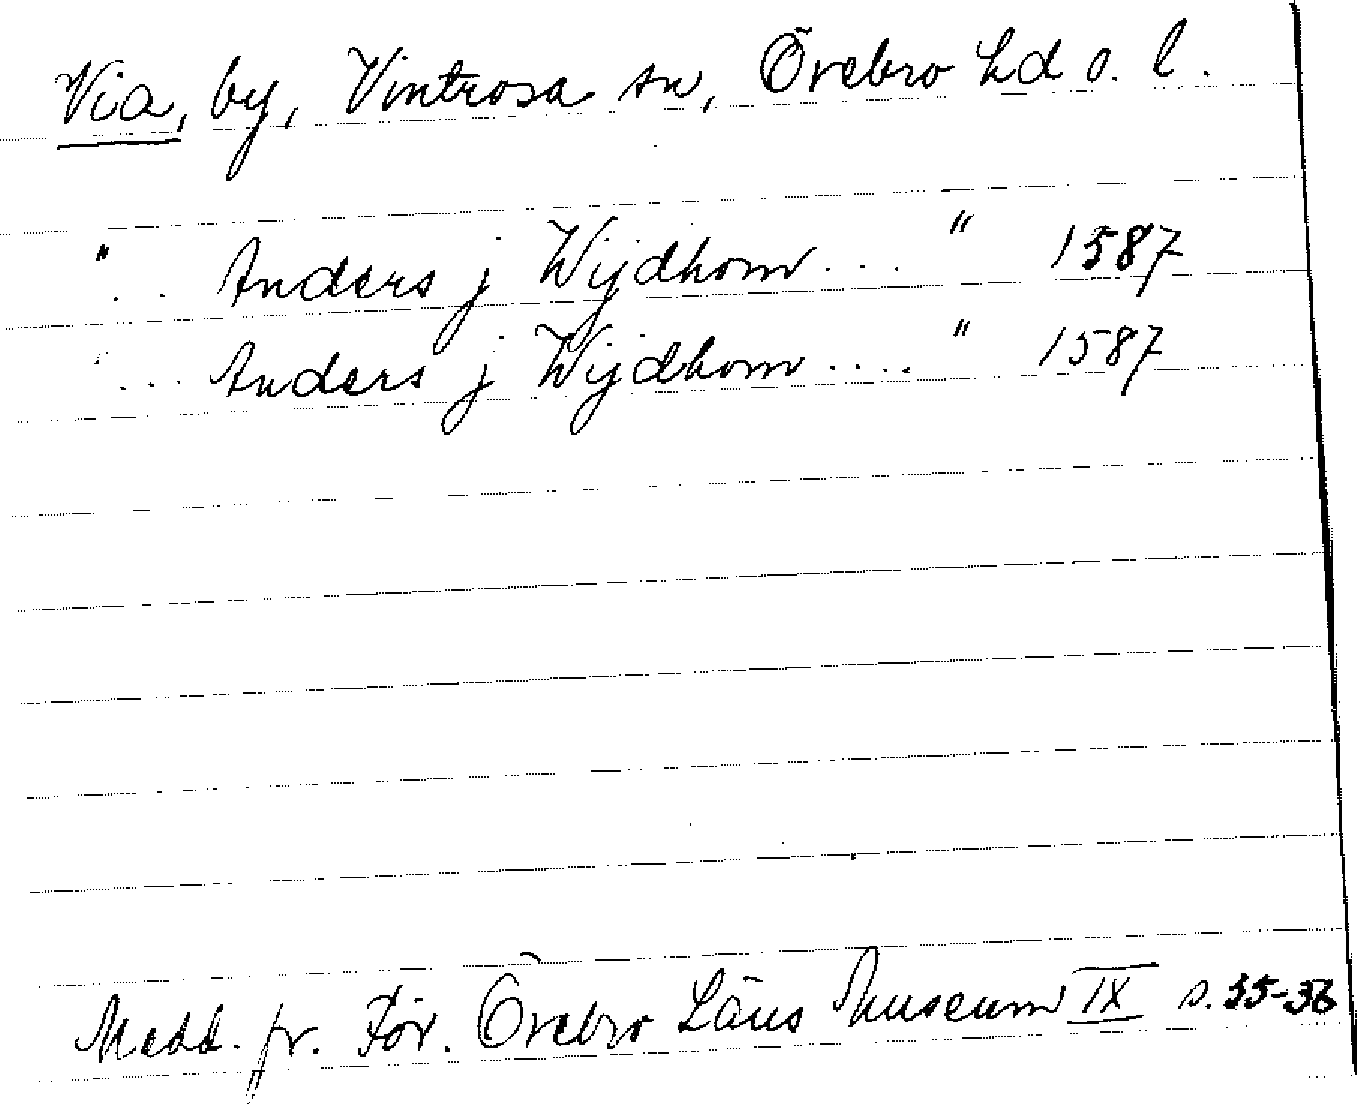 Via, by, Vintrosa sn, Örebro hd o. l.
" ... Anders j Wijdhom ... " 1587
" ... Anders j Wijdhom .... " 1587
Medd. fr. För. Örebro Läns Museum IX s. 35-36